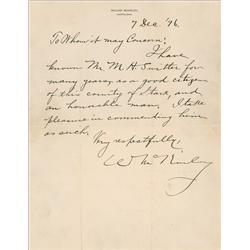 WILLIAM McKINLEY,
CANTON, OHIO.
7 Dec. '96.
To Whom it may Concern:
I have
known Mr. M. H. for
many years, as a good citizen
of this county of Stark, and
an honorable man. I take
pleasure in commending him
as such.
Very respectfully,
Wm McKinley